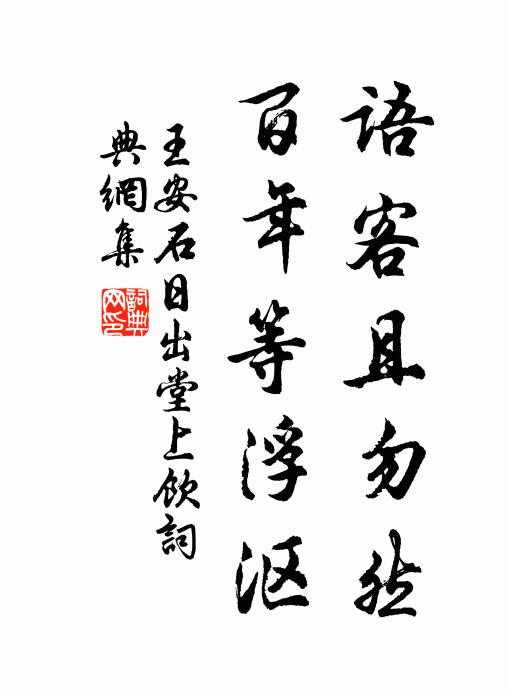 語客且勿然
百年等浮沤
王安石日出堂上飲詞
典網集
詞典
网印